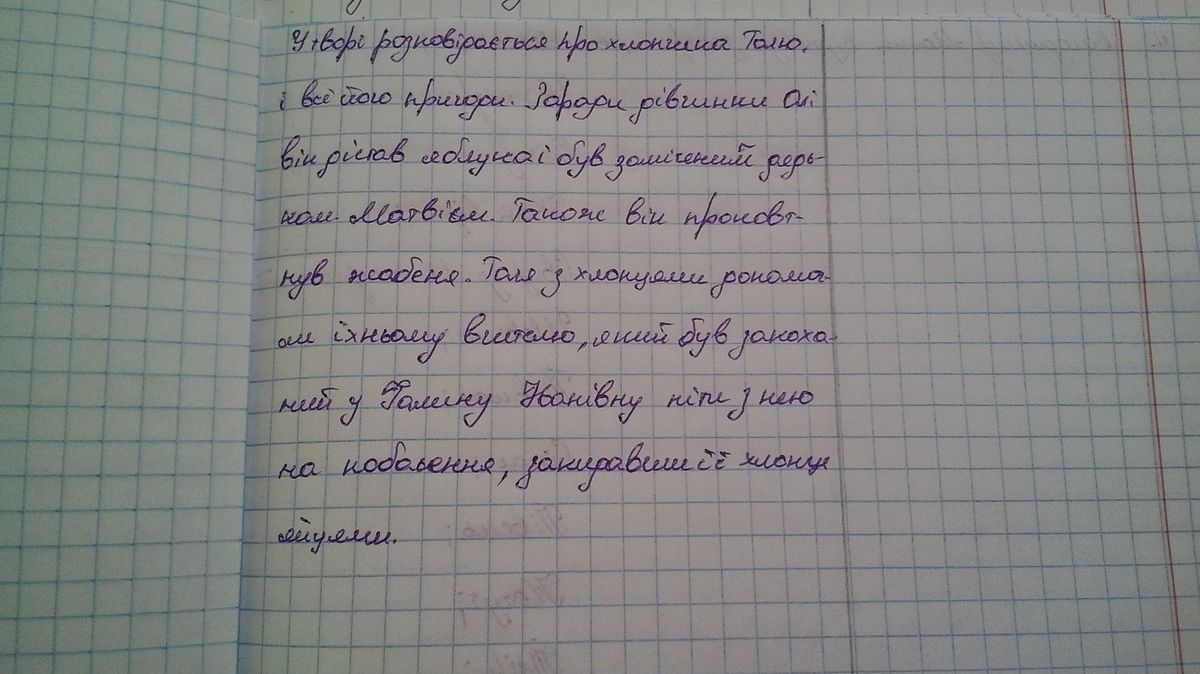 У творі розповідається про хлопчика Толю.
і всі його пригоди. Заради дівчинки Олі
він дістав яблука і був замічений дядь-
ком Матвієм. Також він проковт-
нув жабеня. Толя з хлопцями допома-
гали їхньому вчителю, який був закоха-
ний у Галину Іванівну піти з нею
на побачення, закидавши її хлопця
яйцями.